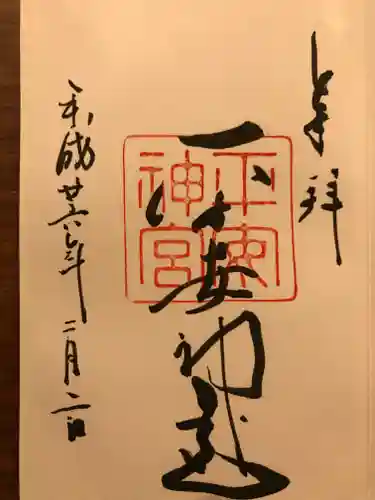 奉拝
平安神宮
平安神宮
平成廿六年二月二日